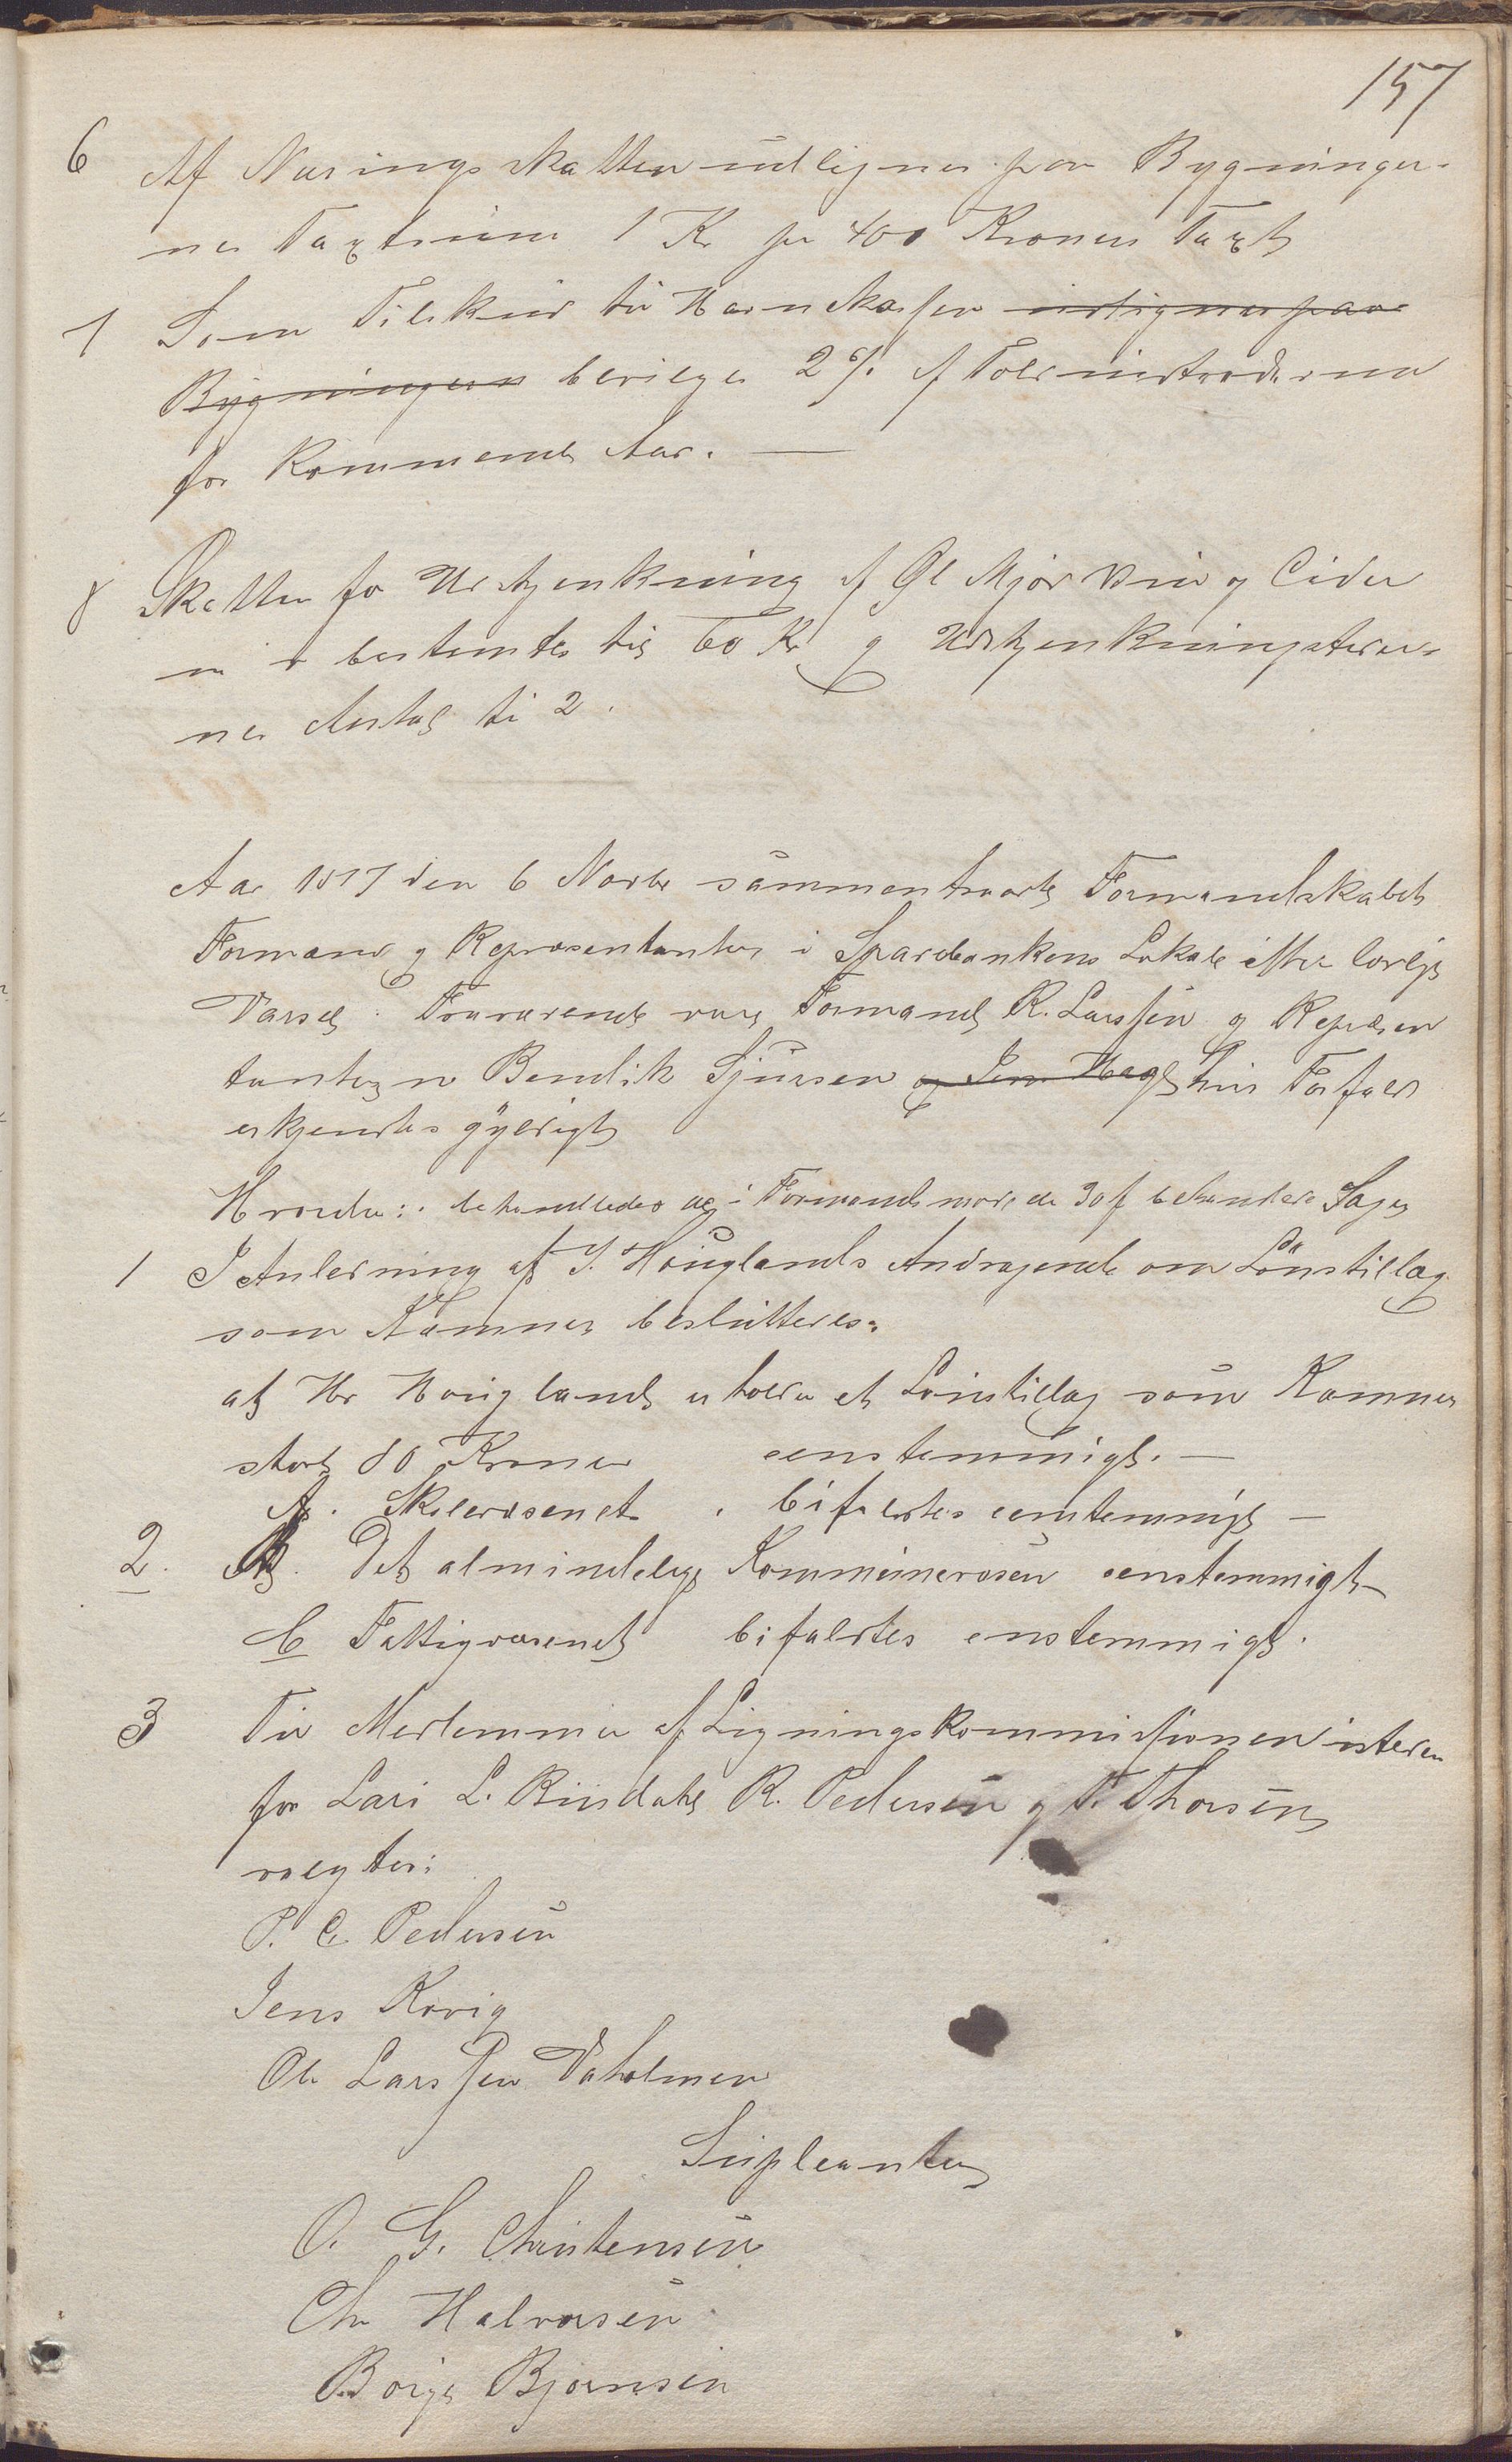 157
6 Af Næringsskatten udlignes paa Bygninger-
nes Taxtsum 1 Kr per 400 Kroners Taxt
7 Som Tilskud til Havnekassen udlignes paa
Bygningern bevilges 2 % af Toldindtægterne
for kommende Aar. —
8 Skatten for Udskjenkning af Øl Mjød Vin og Cider
bestemtes til 60 Kr og Udskjenkningssteder-
nes Antal til 2.
Aar 1877 den 6 Novbr sammentraadte Formandskabets
Formand og Repræsentanter i Sparebankens Lokale efter lovligt
Varsel. Fraværende vare Formand R. Larssen og Repræsen
tanterne Bendik Sjursen og Jens Hage hvis Forfald
erkjendtes gyldigt
Hvorda: behandledes de i Formandsmøde de 30 f behandlede Sager
1 I Anledning af J. Houglands Andragende om Lønstillæg
som Kæmner besluttedes:
at Hr Hougland erholder et Lønstillæg som Kæmner
stort 80 Kroner eenstemmigt. —
A. Skolevæsenet. bifaldtes eenstemmigt —
2. B. Det almindelige Kommunevæsen eenstemmigt —
C Fattigvæsenet bifaldtes enstemmigt.
3 Til Medlemmer af Ligningskommissionen istedn
for Lars L. Riisdahl R. Pedersen og T. Thorsen
valgtes:
P. C. Pedersen
Jens Kovig
Ole Larssen Vaholmen
Supleanter
O. G. Christensen
Chr Halvorsen
Børge Bjørnsen